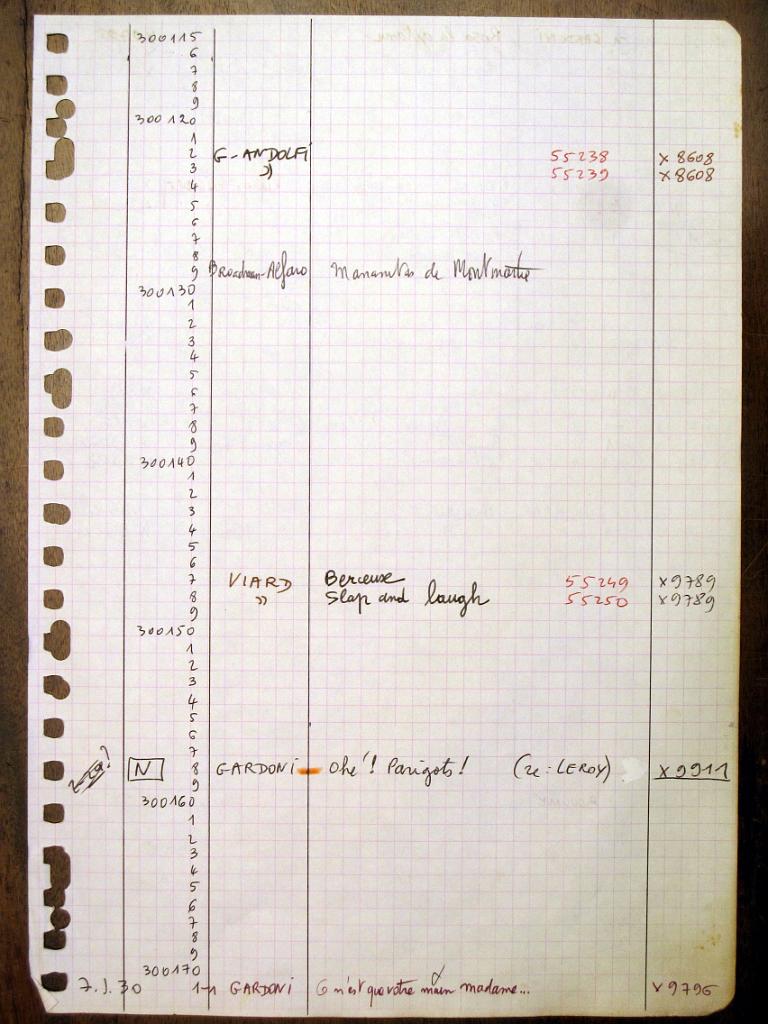 300115
6
7
8
9
300120
1
2 G-ANDOLFI 55238 x 8608
3 )) 55239 x 8608
4
5
6
7
8
9 Alfaro de Montmartre
300130
1
2
3
4
5
6
7
8
9
300140
1
2
3
4
5
6
7 VIARD Berceuse 55249 x 9789
8 )) Slap and laugh 55250 x 9789
9
300150
1
2
3
4
5
6
7
N 8 GARDONI - Ohé! Parigots! (re: LEROY) x 9911
9
300160
1
2
3
4
5
6
7
8
9
300170
7.1.30 1-1 GARDONI C n'est que votre main madame... x 9796